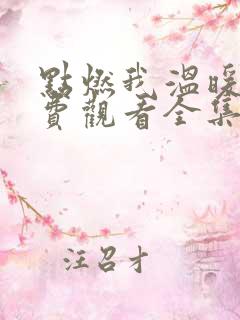 點燃我溫暖
費觀看全集
汪召才